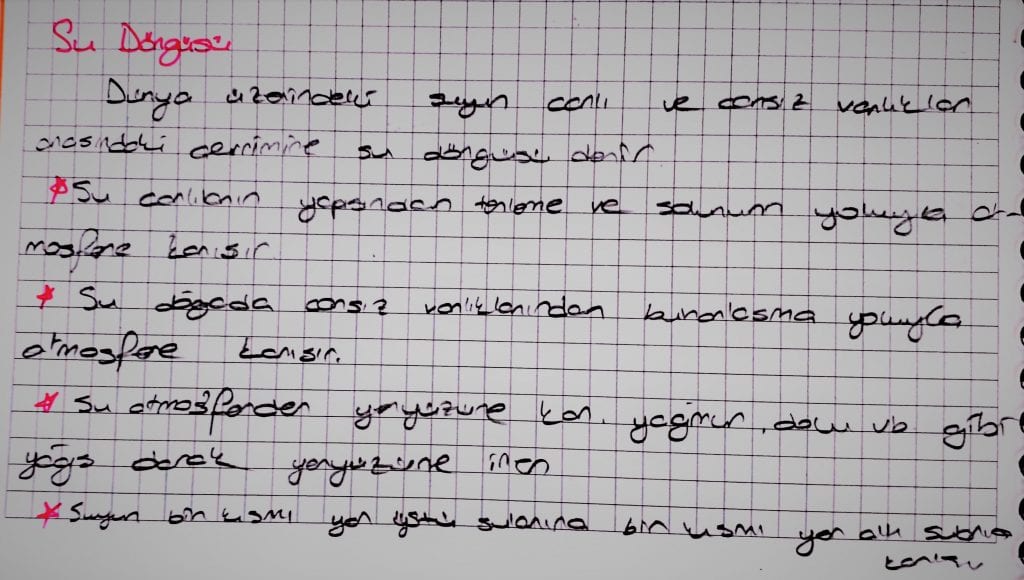 Su Döngüsü
Dünya üzerindeki suyun canlı ve cansız varlıklar
arasındaki çevrimine su döngüsü denir
* Su canlıların yapısından terleme ve solunum yoluyla at-
mosfere karışır
* Su doğada cansız varlıklarından buharlaşma yoluyla
atmosfere karışır.
* Su atmosferden yeryüzüne kar, yağmur, dolu vb gibi
yağış olarak yeryüzüne iner
* Suyun bir kısmı yer üstü sularına bir kısmı yer altı sularına
karışır